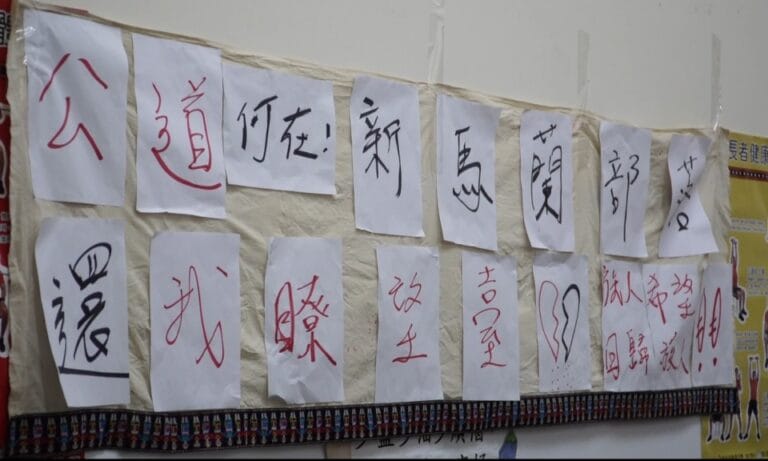 公道何在!新馬蘭部落
還我瞭望臺
族人希望
回歸族人
!!
長者健康